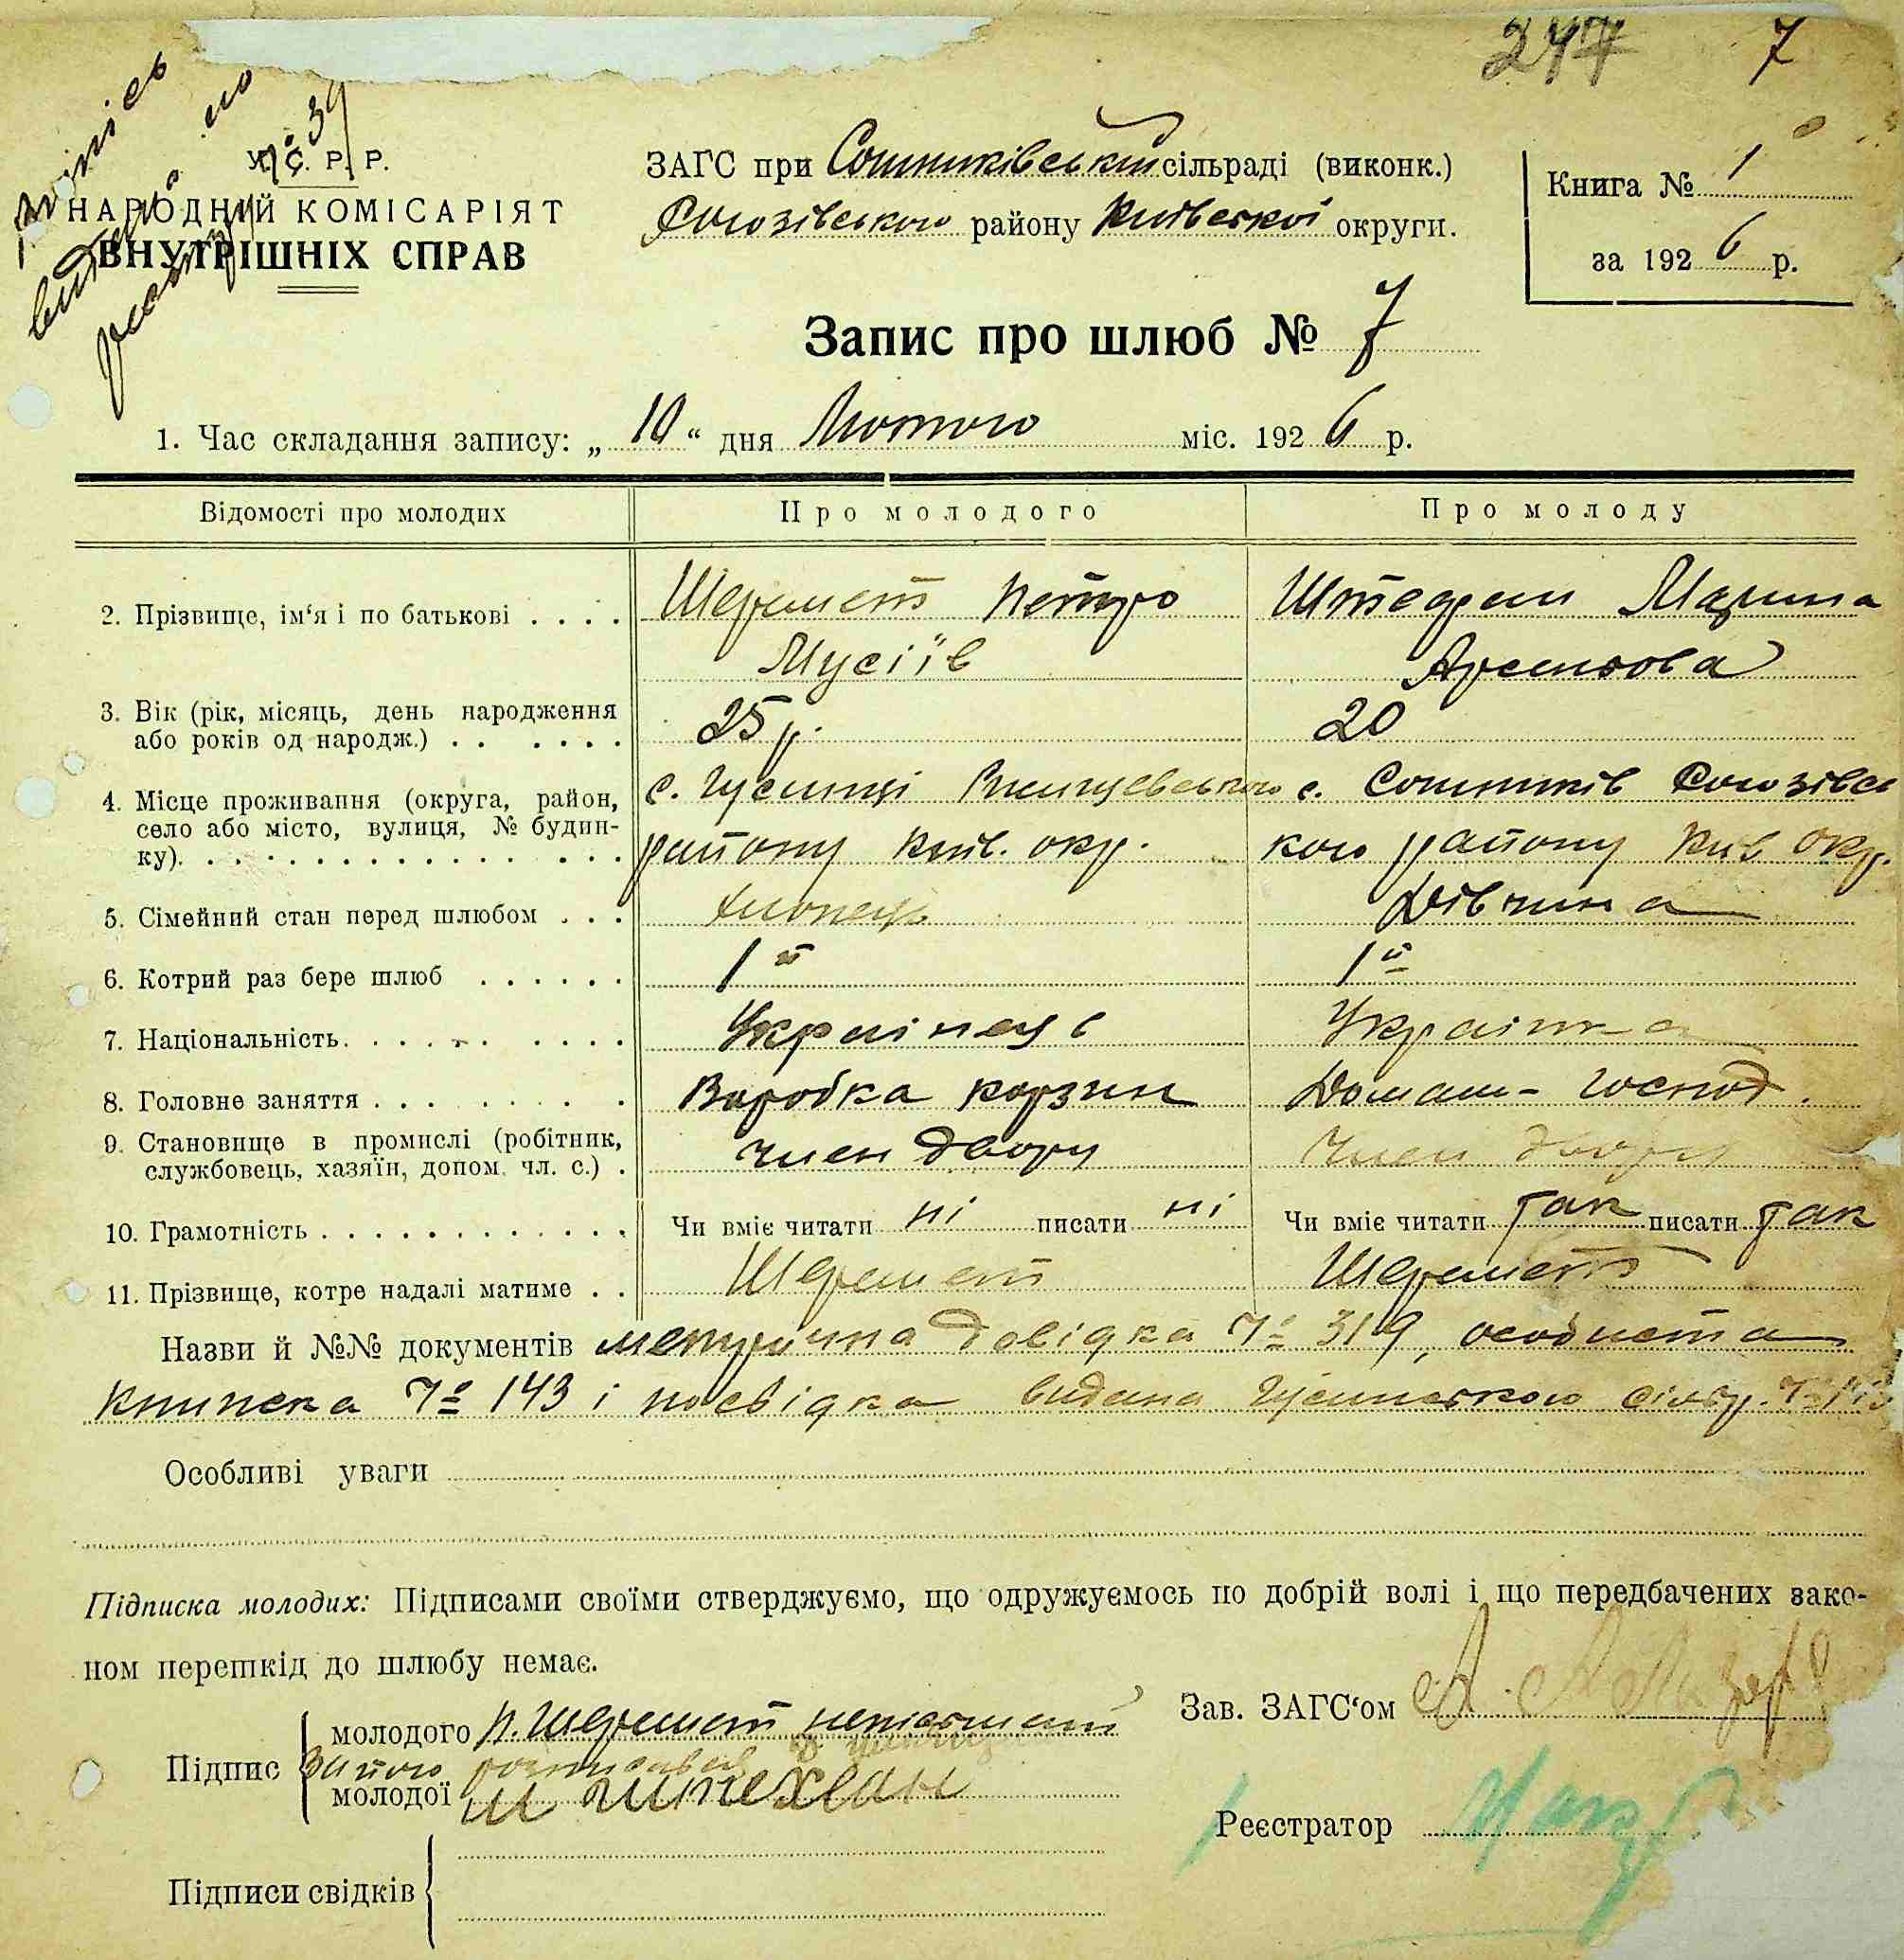 247 7
Випись
видано по
У. С. Р. Р.
НАРОДНИЙ КОМІСАРІЯТ
ВНУТРІШНІХ СПРАВ
ЗАГС при Сошниківській сільраді (виконк.)
району Київської округи.
Книга № 1
за 1926 р.
Запис про шлюб № 7
1. Час складання запису: „10“ дня Лютого міс. 1926 р.
Відомості про молодих Про молодого Про молоду
2. Прізвище, ім‘я і по батькові . . . . Шеремет Петро Марина
Мусіїв Арсенова
3. Вік (рік, місяць, день народження
або років од народж.) . . . . . . 25 р. 20
4. Місце проживання (округа, район, с. Гусинці с. Сошників
село або місто, вулиця, № будин-
ку). . . . . . . . . . . . . . . району Київ. окр. кого району Київ окр.
5. Сімейний стан перед шлюбом . . . хлопець Дівчина
6. Котрий раз бере шлюб . . . . . . 1й 1й
7. Національність. . . . . . . . . . Українець Українка
8. Головне заняття . . . . . . . . Виробка корзин Домаш- господ.
9. Становище в промислі (робітник,
службовець, хазяїн, допом. чл. с.) . член двору член двору
10. Грамотність . . . . . . . . . . . . . Чи вміє читати ні писати ні Чи вміє читати так писати так
11. Прізвище, котре надалі матиме . . Шеремет Шеремет
Назви й №№ документів метрична довідка № 319, особиста
книжка № 143 і посвідка видана Гусинською сільр. №
Особливі уваги
Підписка молодих: Підписами своїми стверджуємо, що одружуємось по добрій волі і що передбачених зако-
ном перешкід до шлюбу немає.
Підпис
молодого П. Шеремет неписьмений
за його росписався
молодої М
Зав. ЗАГС‘ом
Реєстратор
Підписи свідків